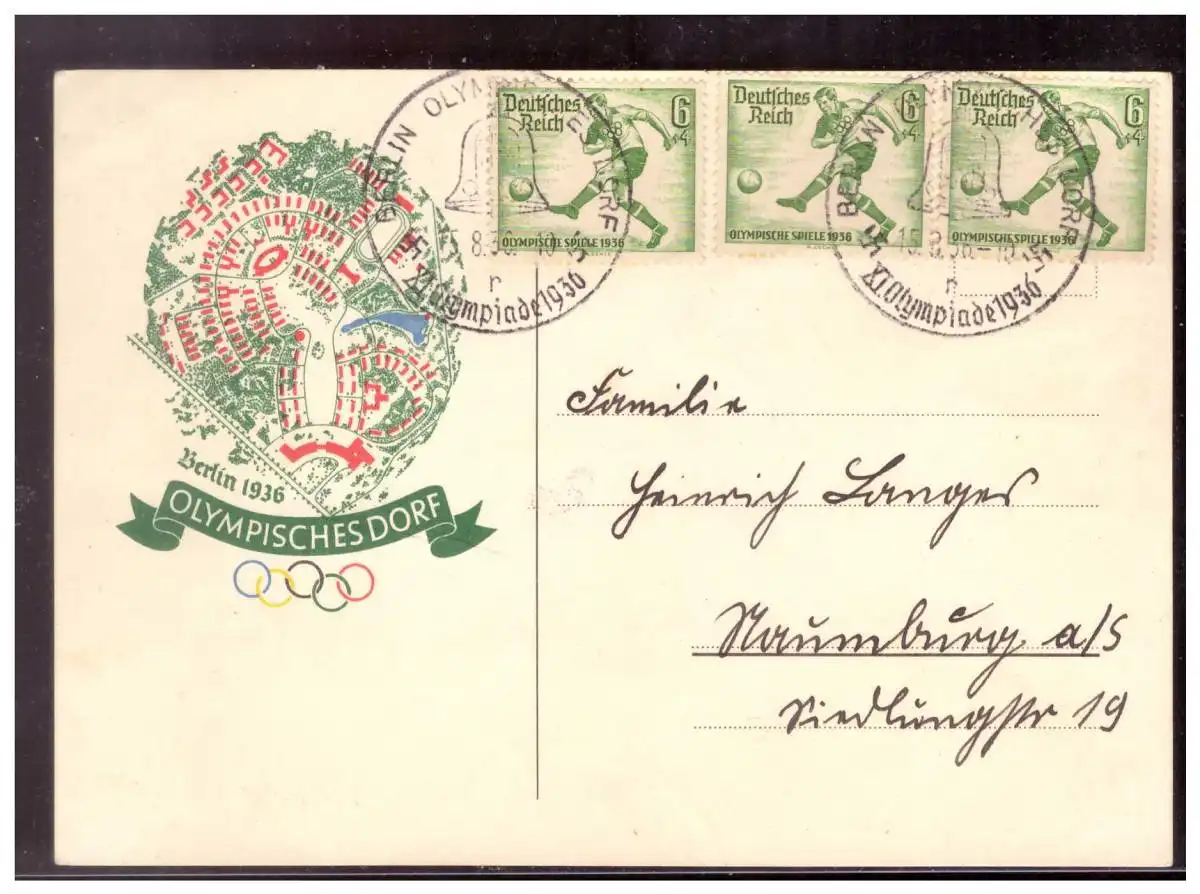 Deutsches
Reich
6
+4
OLYMPISCHE SPIELE 1936
Deutsches
Reich
6
+4
OLYMPISCHE SPIELE 1936
Deutsches
Reich
6
+4
OLYMPISCHE SPIELE 1936
BERLIN OLYMPISCHES DORF
8.36.-10
r
XI Olympiade 1936
BERLIN OLYMPISCHES DORF
15.8.36.-10
r
XI Olympiade 1936
Berlin 1936
OLYMPISCHES DORF
Familie
Heinrich Langes
Naumburg a/S
Siedlungstr 19